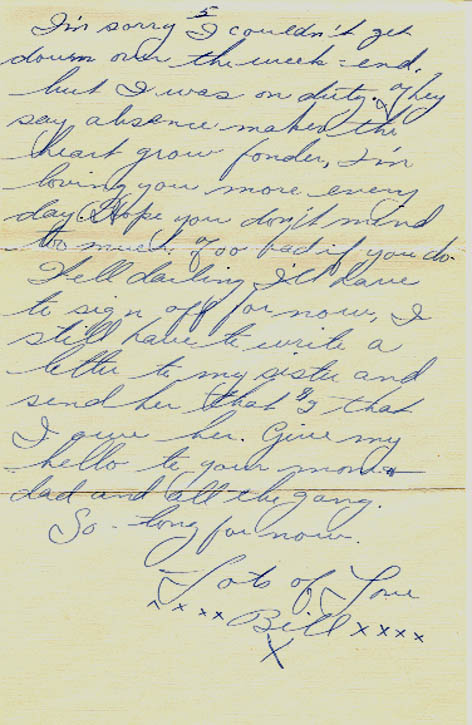 5
I'm sorry I couldn't get
down over the week-end,
but I was on duty. They
say absence makes the
heart grow fonder, I'm
loving you more every
day. Hope you don't mind
too much. Too bad if you do.
Well darling I'll have
to sign off for now, I
still have to write a
letter to my sister and
send her that $2 that
I owe her. Give my
hello to your mom +
dad and all the gang.
So-long for now.
Lots of Love
xxxx Bill xxxx
X